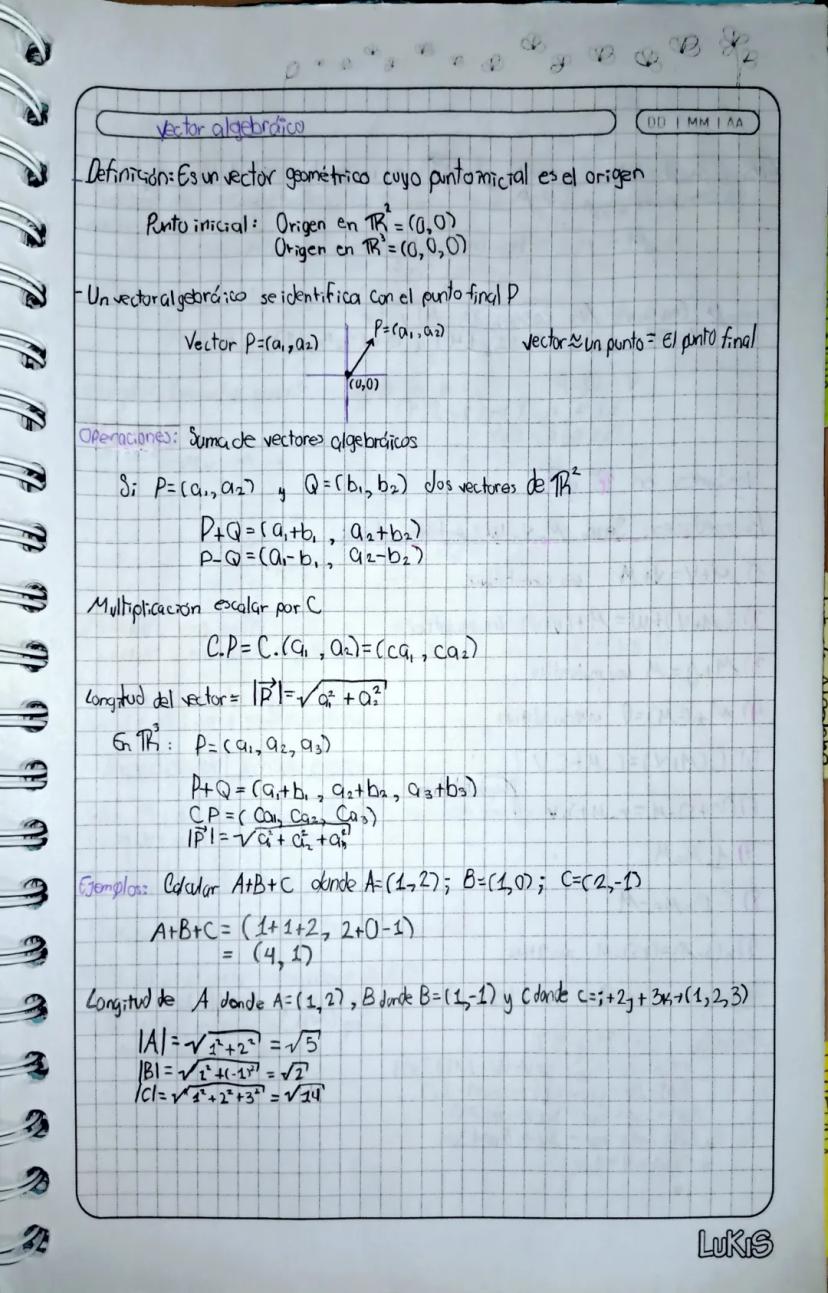 Vector algebráico
DD | MM | AA
- Definición: Es un vector geométrico cuyo punto inicial es el origen
Punto inicial: Origen en ℝ² = (0,0)
Origen en ℝ³ = (0,0,0)
- Un vector algebráico se identifica con el punto final P
Vector P=(a₁,a₂)
P=(a₁,a₂)
(0,0)
vector ≈ un punto = El punto final
Operaciones: Suma de vectores algebráicos
Si P=(a₁,a₂) y Q=(b₁,b₂) dos vectores de ℝ²
P+Q=(a₁+b₁, a₂+b₂)
P-Q=(a₁-b₁, a₂-b₂)
Multiplicación escalar por C
C.P= C.(a₁, a₂)=(ca₁, ca₂)
Longitud del vector= |P⃗|=√a₁² + a₂²
En ℝ³: P=(a₁,a₂,a₃)
P+Q=(a₁+b₁, a₂+b₂, a₃+b₃)
CP=(Ca₁, Ca₂, Ca₃)
|P⃗|=√a₁²+a₂²+a₃²
Ejemplos: Calcular A+B+C donde A=(1,2); B=(1,0); C=(2,-1)
A+B+C= (1+1+2, 2+0-1)
= (4,1)
Longitud de A donde A=(1,2), B donde B=(1,-1) y C donde c=i+2j+3k→(1,2,3)
|A|=√1²+2² =√5
|B|=√1²+(-1)² =√2
|C|=√1²+2²+3² =√14
LuKiS